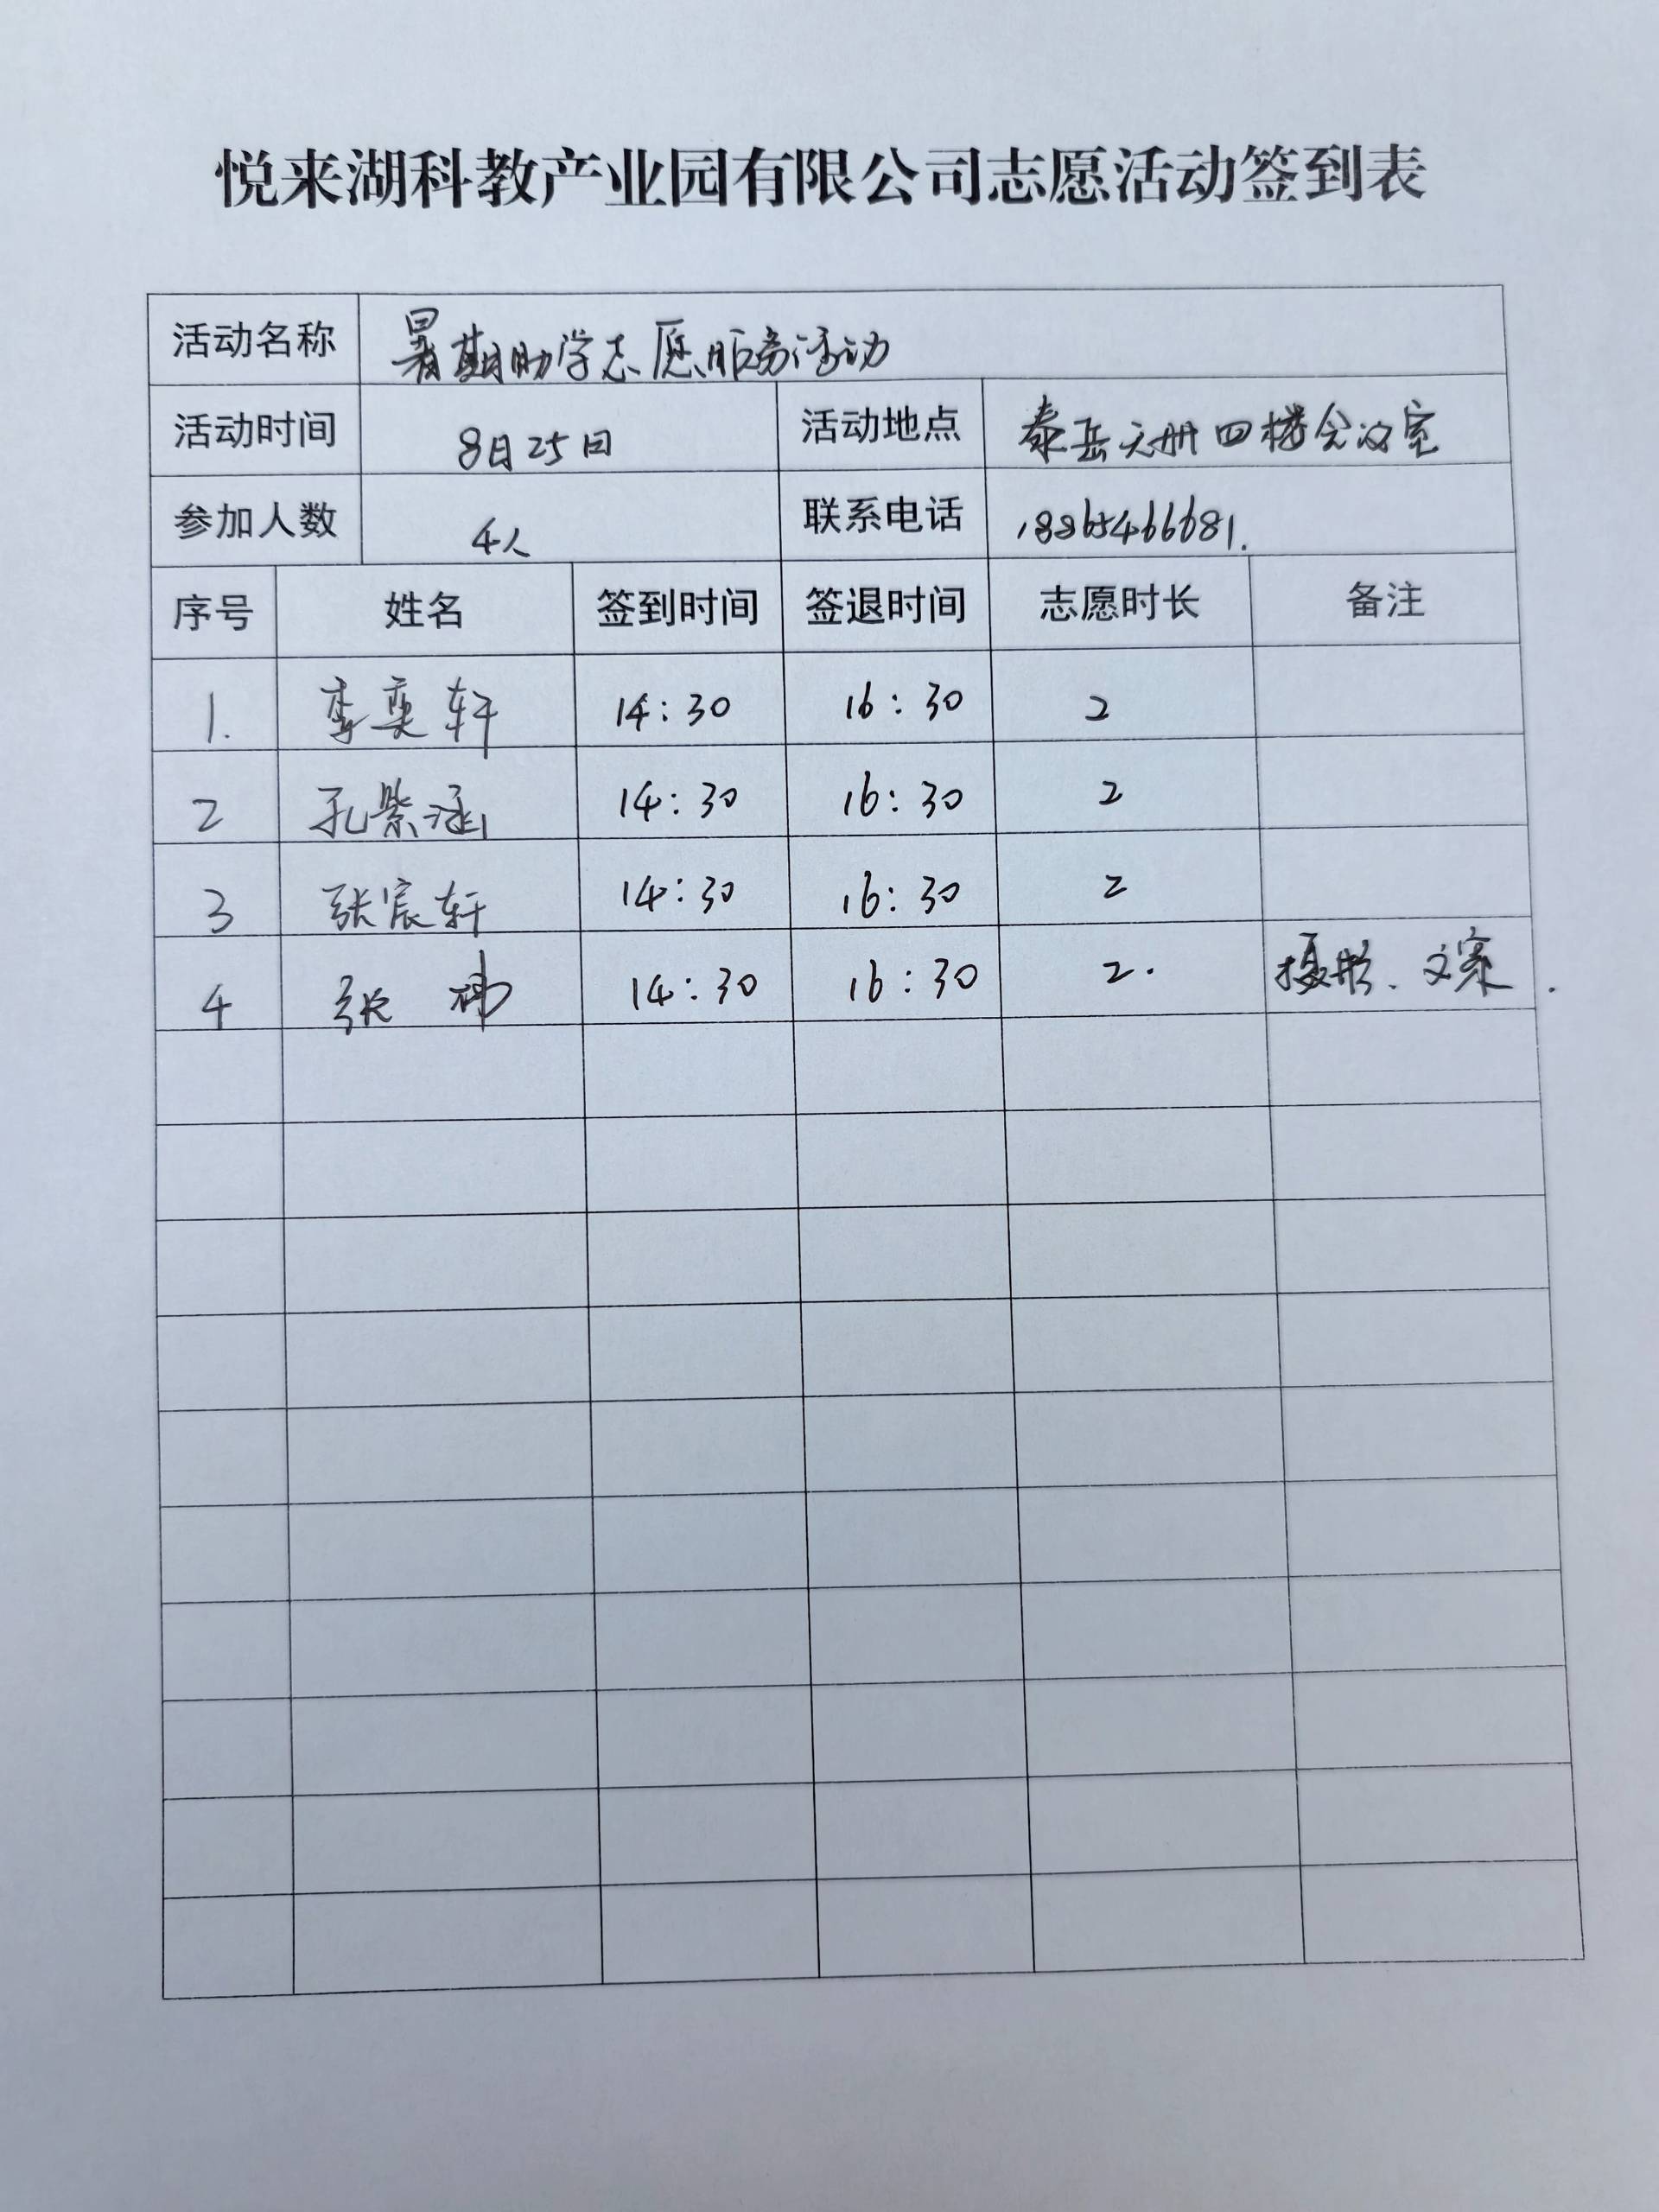 悦来湖科教产业园有限公司志愿活动签到表
活动名称 暑期助学志愿服务活动
活动时间 8月25日 活动地点 泰岳天册四楼会议室
参加人数 4人 联系电话 18865466681.
序号 姓名 签到时间 签退时间 志愿时长 备注
1. 奕轩 14:30 16:30 2
2 孔紫涵 14:30 16:30 2
3 张宸轩 14:30 16:30 2
4 张 14:30 16:30 2. 摄影、文案.